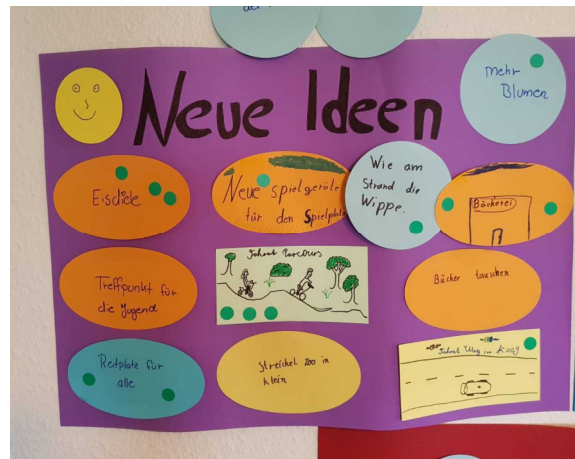 Neue Ideen
mehr
Blumen
Eisdiele
Neue spielgeräte
für den Spielplatz
Wie am
Strand die
Wippe.
Bäckerei
Treffpunkt für
die Jugend
Fahrrat Parcours
Bücher tauschen
Reitplatz für
alle
Streichel Zoo in
klein
Fahrrat Weg in